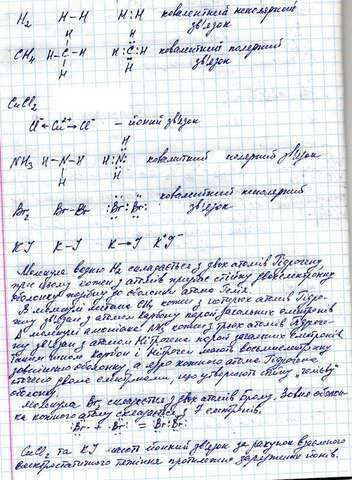 H₂ H – H H : H ковалентний неполярний
зв'язок
H H
CH₄ H – C – H H : C : H ковалентний полярний
зв'язок
H H
CuCl₂
Cl⁻ ← Cu²⁺ → Cl⁻ – йоний зв'язок
H
NH₃ H – N – H H : N : ковалитний полярний зв'язок
H H
ковалентний неполярний
Br₂ Br – Br :Br : Br: зв'язок
KI K – I K → I K⁺I⁻
Молекула водню H₂ складається з двох атомів Гідрогену
при цьому кожен з атомів придбає стійку двоелектронну
оболонку подібну до оболонки атома Гелія.
В молекулі метана CH₄ кожен з чотирьох атомів Гідро-
гену зв'язан з атомом Карбону парою загальних електронів
В молекулі аммоніака NH₃ кожен з трьох атомів Гідроге-
ну зв'язан з атомом Нітрогена парою загальних електронів
Таким чином Карбон і Нітроген мають восьмиелектронну
зовнішню оболонку, а ядро кожного атома Гідрогена
оточено двома електронами, що утворюють стійку "гелієву"
оболонку.
Молекула Br₂ складається з двох атомів брому. Зовн. оболон-
ка кожного атому складається з 7 електронів.
:Br· + ·Br: = :Br:Br:
CuCl₂ та KI мають йонний зв'язок за рахунок взаємного
електростатичного тяжіння протилежно заряджених йонів.